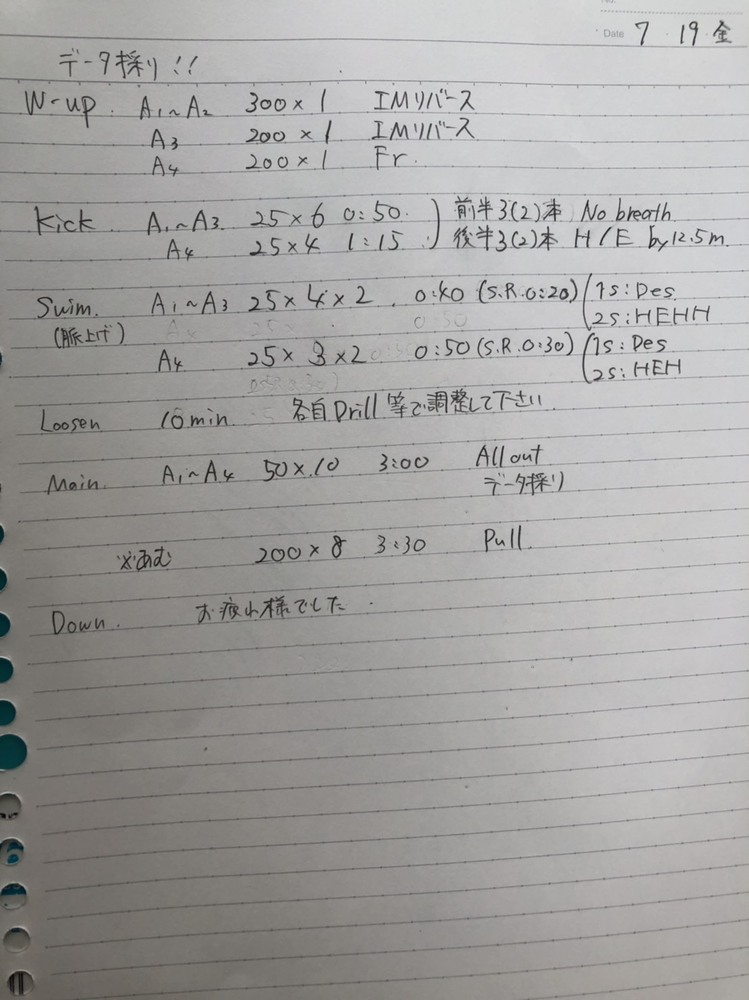 No.
Date 7・19 金
データ採り!!
W-up. A₁~A₂ 300×1 IMリバース
A₃ 200×1 IMリバース
A₄ 200×1 Fr.
Kick A₁~A₃ 25×6 0:50. ) 前半3(2)本 No breath
A₄ 25×4 1:15 ) 後半3(2)本 H/E by12.5m
Swim. A₁~A₃ 25×4×2. 0:40 (S.R.0:20) 1s:Des
(脈上げ) 2s:HEHH
A₄ 25×3×2 0:50 (S.R.0:30) 1s:Des
2s:HEH
Loosen 10min. 各自Drill等で調整して下さい
Main. A₁~A₄ 50×10 3:00 All out
データ採り
※あむ 200×8 3:30 Pull.
Down. お疲れ様でした.